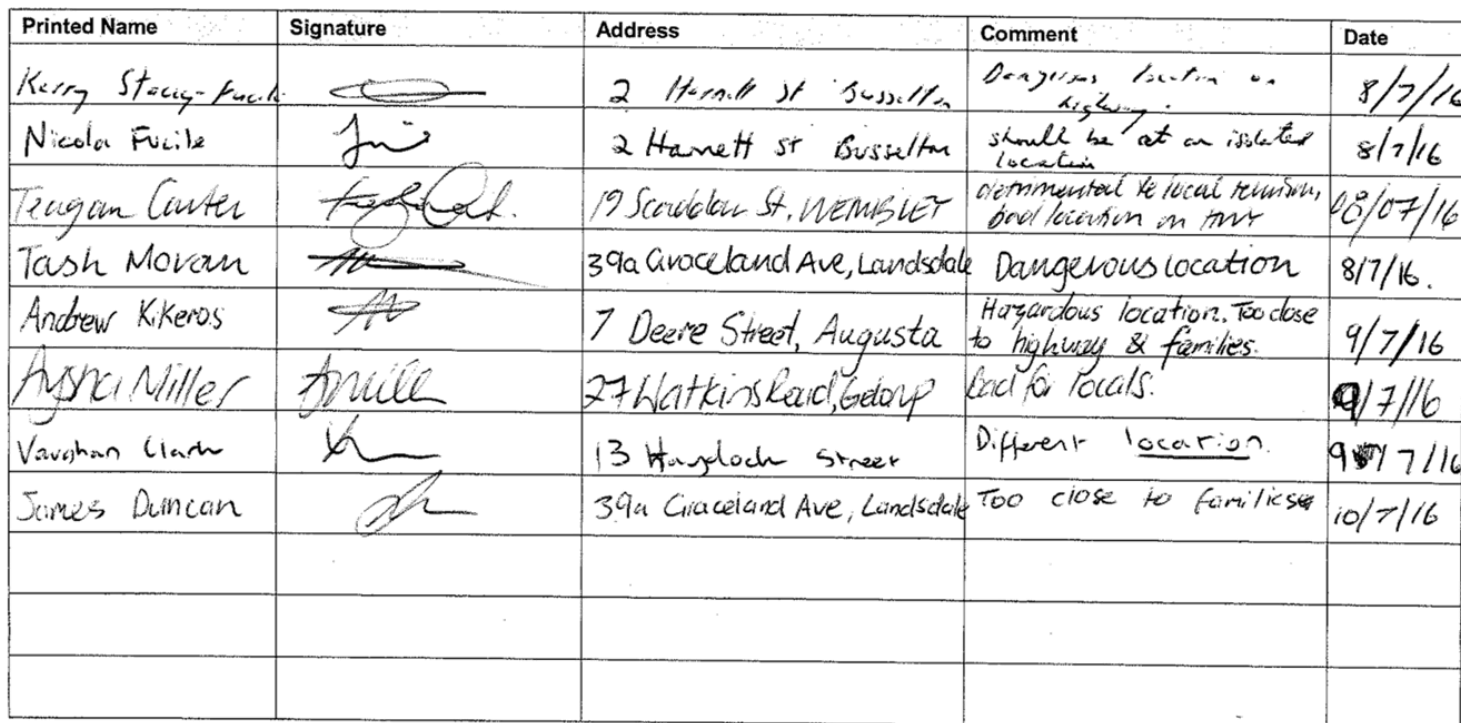 Printed Name Signature Address Comment Date
Kerry Stacey-Fucile 2 Harnett St Busselton Dangerous location on highway. 8/7/16
Nicola Fucile 2 Harnett St Busselton should be at an isolated location 8/7/16
Teagan Carter 19 Scaddan St, WEMBLEY detrimental to local tourism, bad location on HWY 08/07/16
Tash Moran 39a Graceland Ave, Landsdale Dangerous location 8/7/16.
Andrew Kikeros 7 Deere Street, Augusta Hazardous location. Too close to highway & families. 9/7/16
Aysha Miller 27 Watkins Road, Gelorup Bad for locals. 9/7/16
Vaughan Clark 13 Street Different location. 9/7/16
James Duncan 39a Graceland Ave, Landsdale Too close to families 10/7/16